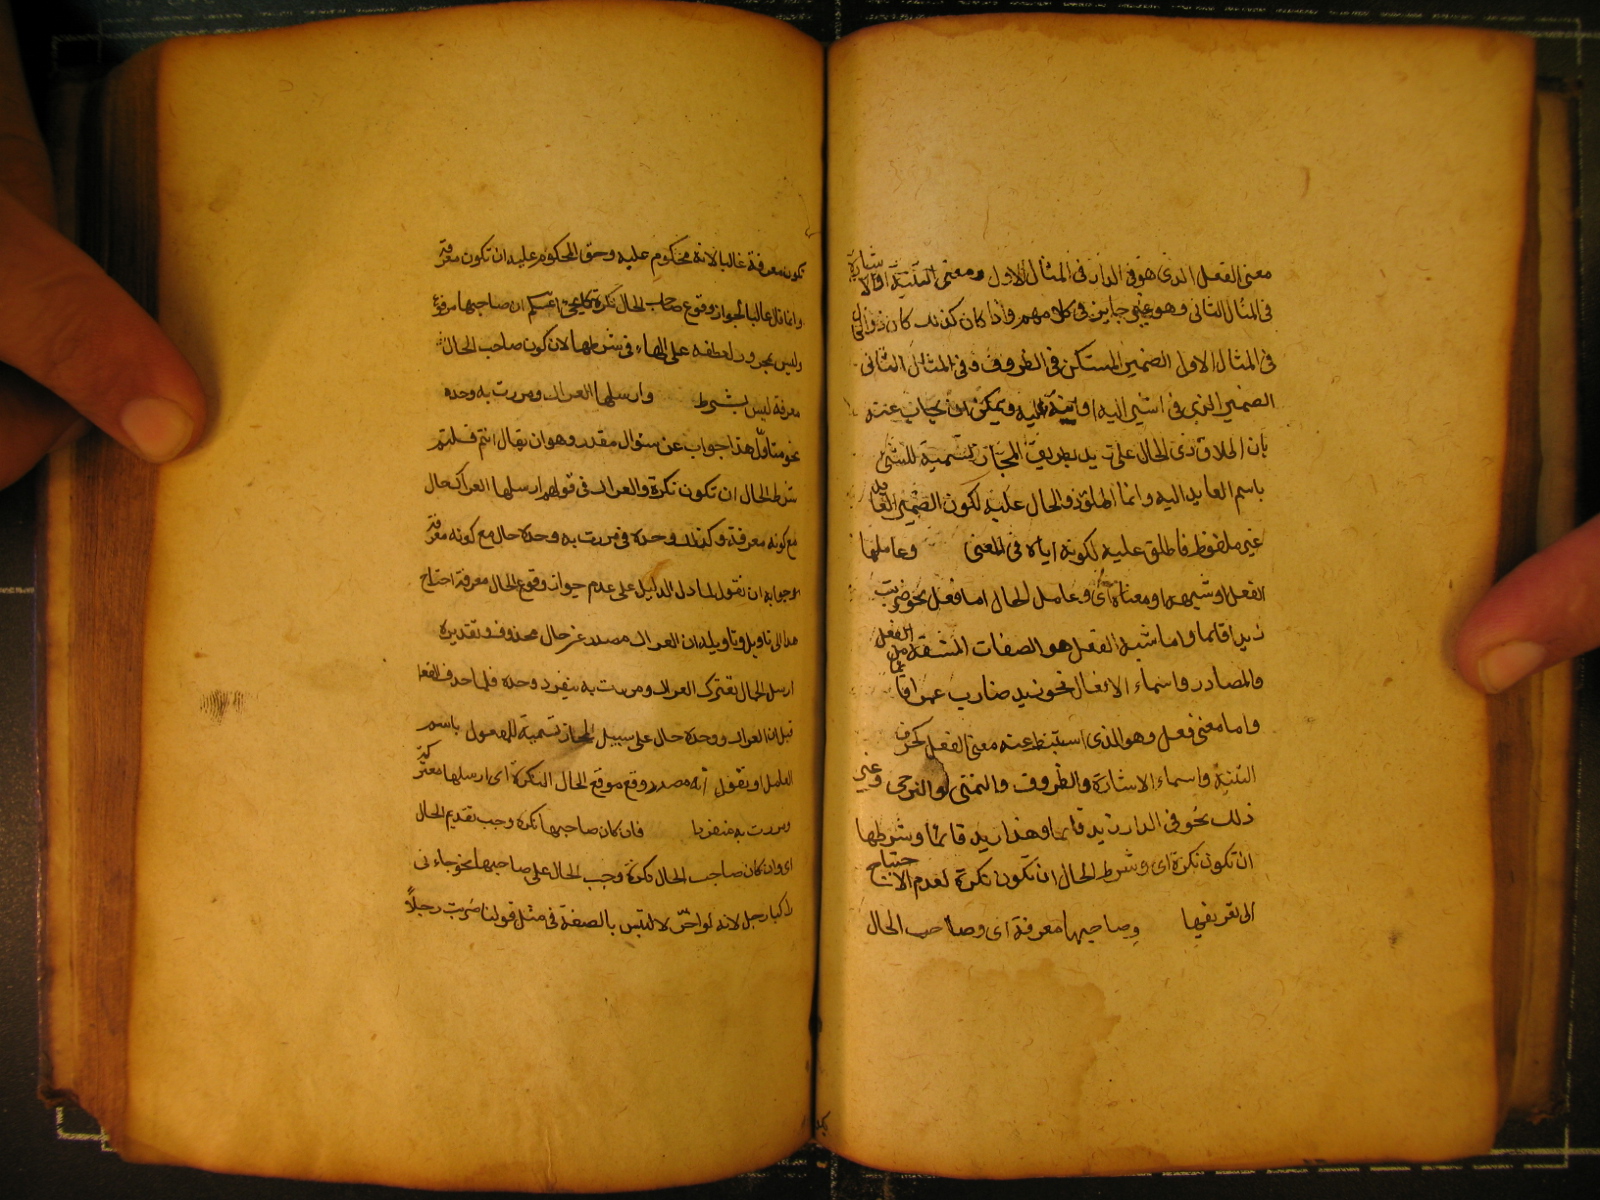 معنى الفعل الذى هو فى الدار فى المثال الاول ومعنى التنبيه او الاشارة
فى المثال الثانى وهو غير جايز فى كلامهم واذا كان كذلك كان ذو الحال
فى المثال الاول الضمير المستكن فى الظروف وفى المثال الثانى
الضمير الذى فى اشير اليه او انبه عليه ويمكن ان يجاب عنه
بان اطلاق ذى الحال على زيد بطريق المجاز تسمية للشئ
باسم العايد اليه وانما اطلق ذو الحال عليه لكون الضمير العايد
غير ملفوظ فاطلق عليه لكونه اياه فى المعنى وعاملها
الفعل او شبهه او معناه اى وعامل الحال اما فعل نحو ضربت
زيدا قائما واما شبه الفعل هو الصفات المشتقة من الفعل
والمصادر واسماء الافعال نحو زيد ضارب عمرا قائما
واما معنى فعل وهو الذى استنبط عنه معنى الفعل كحرف
التنبيه واسماء الاشارة والظروف والتمنى والترجى وغير
ذلك نحو فى الدار زيد قائما وهذا زيد قائما وشرطها
ان تكون نكرة اى وشرط الحال ان تكون نكرة لعدم الاحتياج
الى تعريفها وصاحبها معرفة اى وصاحب الحال
تكون معرفة غالبا لانه محكوم عليه وحق المحكوم عليه ان تكون معرفة
وانما قال غالبا لجواز وقوع صاحب الحال نكرة كما يجئ اعلم ان صاحبها مرفوع
وليس بمجرور لعطفه على الهاء فى شرطها لان كون صاحب الحال
معرفة ليس بشرط وارسلها العراك ومررت به وحده
نحو متاول هذا جواب عن سؤال مقدر وهو ان يقال انتم قلتم
شرط الحال ان تكون نكرة والعراك فى قولهم ارسلها العراك حال
مع كونه معرفة وكذلك وحده فى مررت به وحده حال مع كونه معرفة
وجوابه ان نقول لما دل الدليل على عدم جواز وقوع الحال معرفة احتاج
هذا الى تاويل وتاويله ان العراك مصدر عن حال محذوف وتقديره
ارسل الحال تعترك العراك ومررت به ينفرد وحده فلما حذف الفعل
قيل ان العراك ووحده حال على سبيل المجاز تسمية للمعمول باسم
العامل او نقول انه مصدر وقع موقع الحال النكرة اى ارسلها معتركة
ومررت به منفردا فان كان صاحبها نكرة وجب تقديم الحال
اى وان كان صاحب الحال نكرة وجب الحال على صاحبها نحو جاءنى
راكبا رجل لانه لو اخر لالتبس بالصفة فى مثل قولنا ضربت رجلاً